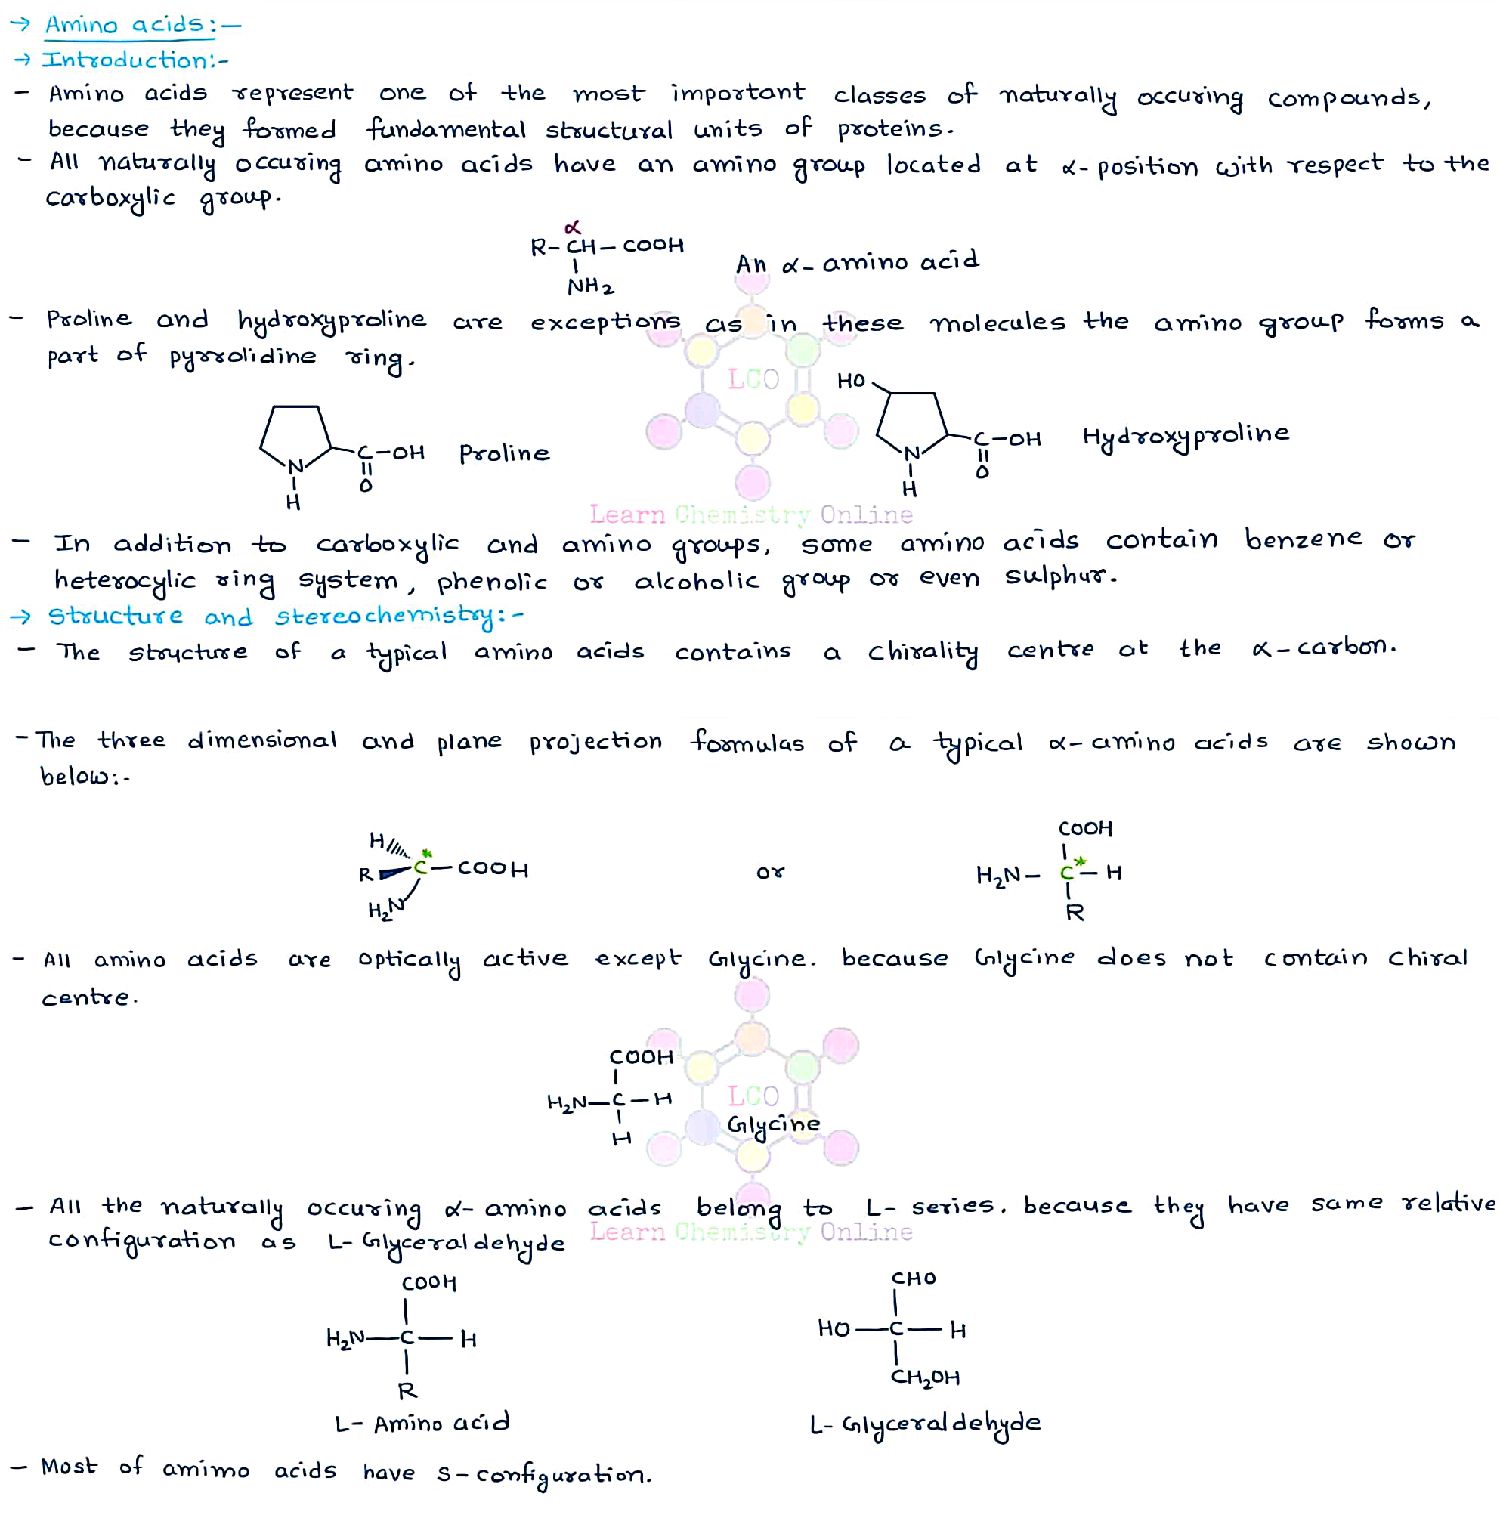 → Amino acids:—
→ Introduction:-
- Amino acids represent one of the most important classes of naturally occuring compounds,
because they formed fundamental structural units of proteins.
- All naturally occuring amino acids have an amino group located at α-position with respect to the
carboxylic group.
α
R-CH-COOH
NH2
An α-amino acid
- Proline and hydroxyproline are exceptions as in these molecules the amino group forms a
part of pyrrolidine ring.
LCO
HO
C-OH Proline
N
O
H
C-OH Hydroxyproline
N
O
H
Learn Chemistry Online
- In addition to carboxylic and amino groups, some amino acids contain benzene or
heterocylic ring system, phenolic or alcoholic group or even sulphur.
→ Structure and stereochemistry:-
- The structure of a typical amino acids contains a chirality centre at the α-carbon.
- The three dimensional and plane projection formulas of a typical α-amino acids are shown
below:-
H
R C* — COOH
H2N
or
COOH
H2N- C* - H
R
- All amino acids are optically active except Glycine. because Glycine does not contain chiral
centre.
COOH
H2N-C-H
H
LCO
Glycine
- All the naturally occuring α-amino acids belong to L-series. because they have same relative
configuration as L-Glyceraldehyde
Learn Chemistry Online
COOH
H2N—C—H
R
L- Amino acid
CHO
HO—C—H
CH2OH
L-Glyceraldehyde
- Most of amimo acids have S-configuration.